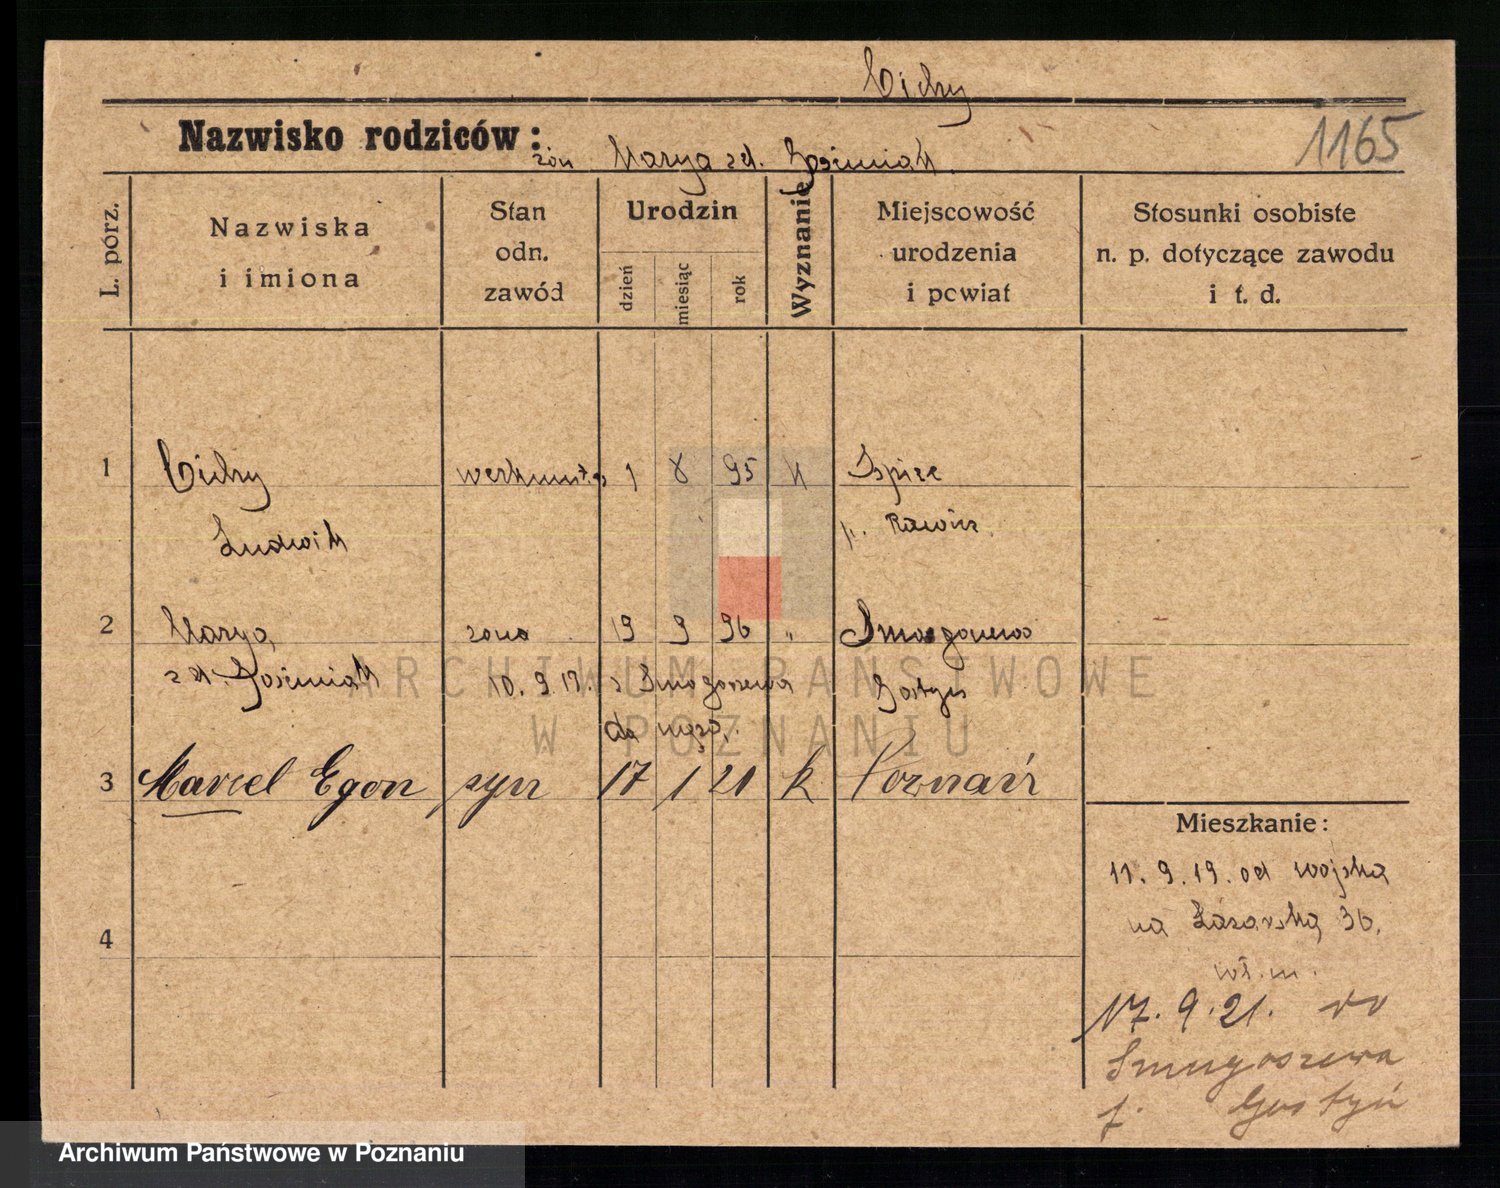 Cichy
Nazwisko rodziców:
żon Marya zd. Josimiak.
1165
L. porz.
Nazwiska
i imiona
Stan
odn.
zawód
Urodzin
dzień
miesiąc
rok
Wyznanie
Miejscowość
urodzenia
i powiat
Stosunki osobiste
n. p. dotyczące zawodu
i t. d.
1 Cichy 1 8 95 k
Ludwik p. Rawicz.
2 Marya, żona 19 9 96 "
zd. Josimiak 10.9.19. z Smogorzewa Gostyń
do
3 Marcel Egon syn 17 1 21 k Poznań
4
Mieszkanie:
11.9.19. od wojska
na Łazarską 36.
17.9.21. do
Smogoszewa
p. Gostyń
ARCHIWUM PAŃSTWOWE
W POZNANIU
Archiwum Państwowe w Poznaniu